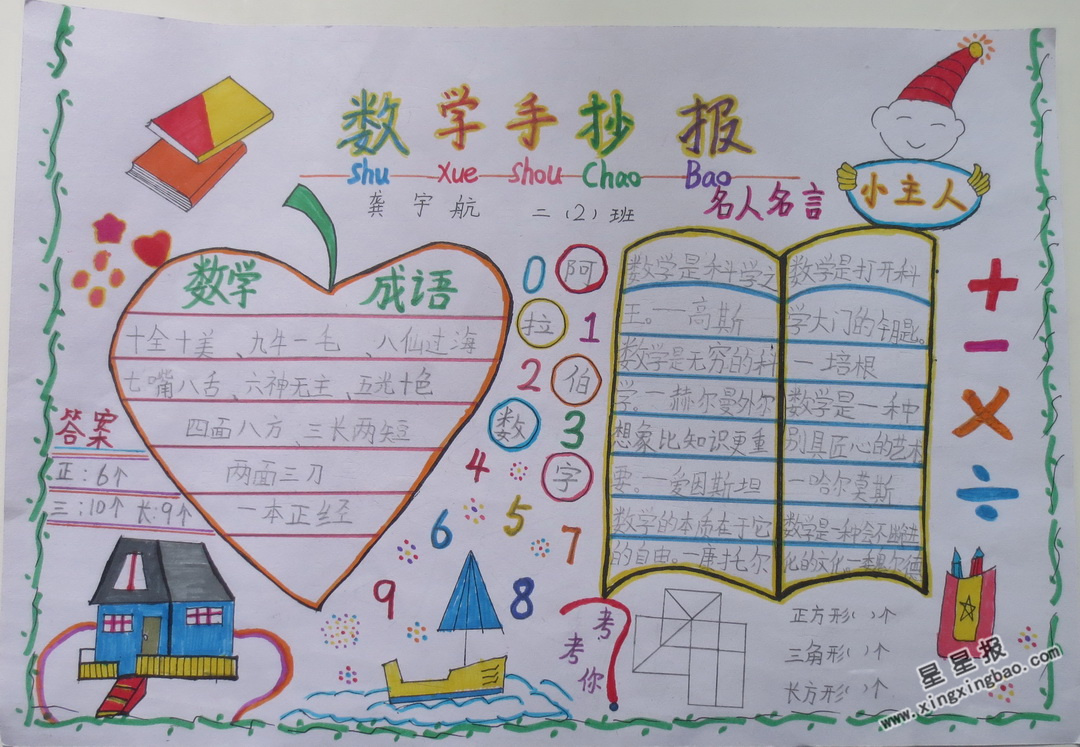 数学手抄报
shu Xue shou Chao Bao
龚宇航 二(2)班
名人名言
小主人
数学 成语
十全十美、九牛一毛、八仙过海
七嘴八舌、六神无主、五光十色
四面八方、三长两短
两面三刀
一本正经
答案
正:6个
三:10个 长:9个
0 阿
拉 1
2 伯
数 3
4 字
5
6 7
8
9
数学是科学之
王。一高斯
数学是无穷的科
学。一赫尔曼外尔
想象比知识更重
要。一爱因斯坦
数学的本质在于它
的自由。一康托尔
数学是打开科
学大门的钥匙。
一培根
数学是一种
别具匠心的艺术
一哈尔莫斯
数学是一种会不断进
化的文化一魏尔德
+
−
×
÷
考考你
正方形( )个
三角形( )个
长方形( )个
星星报
www.xingxingbao.com